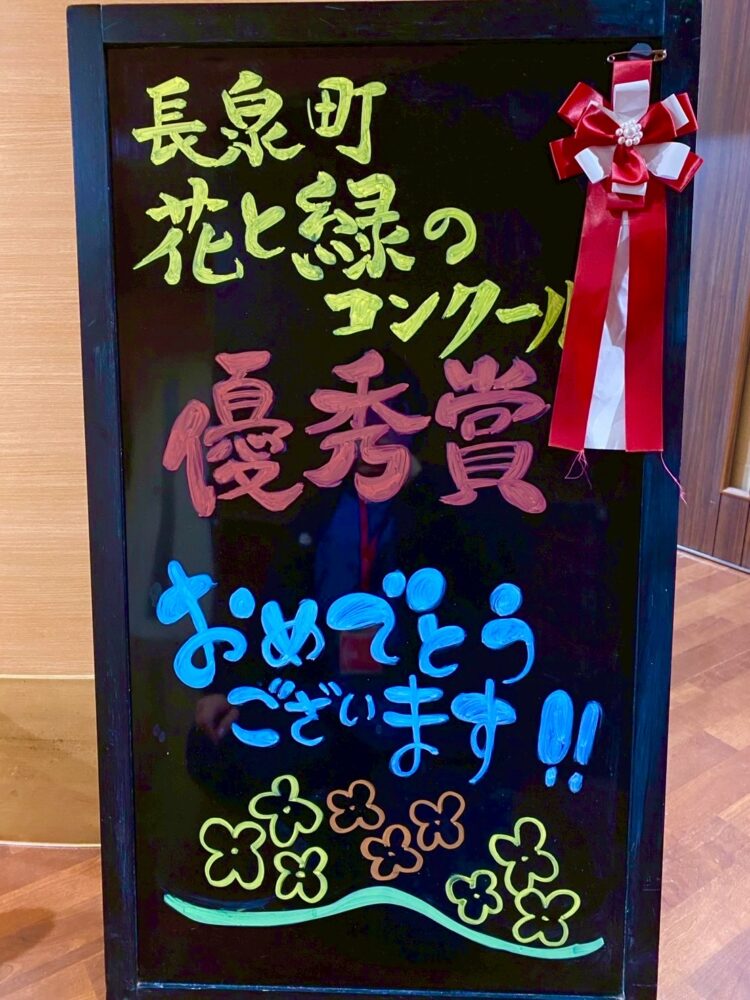 長泉町
花と緑の
コンクール
優秀賞
おめでとう
ございます!!